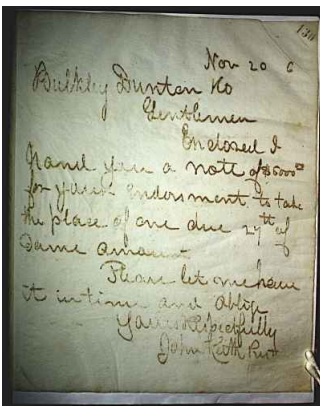 130
Nov 20 6
Bulkley Dunton & Co
Gentlemen
Enclosed I
hand you a note of $5000 00
for your endorsment, to take
the place of one due 27th of
same amount
Please let me have
it in time and oblige
Yours Respectfully
John Keith